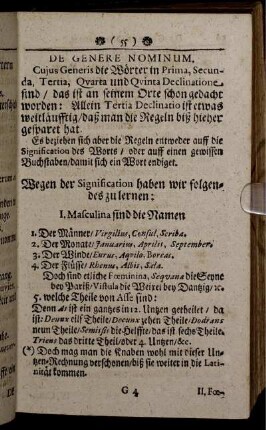 (55)
DE GENERE NOMINUM.
Cujus Generis die Wörter in Prima, Secun-
da, Tertia, Qvarta und Qvinta Declinatione
sind / das ist an seinem Orte schon gedacht
worden: Allein Tertia Declinatio ist etwas
weitläufftig / daß man die Regeln biß hieher
gesparet hat.
Es beziehen sich aber die Regeln entweder auff die
Signification des Worts / oder auff einen gewissen
Buchstaben / damit sich ein Wort endiget.
Wegen der Signification haben wir folgen-
des zu lernen:
I. Masculina sind die Namen
1. Der Männer / Virgilius, Consul, Scriba.
2. Der Monate / Januarius, Aprilis, Septemberi
3. Der Winde / Eurus, Aqvilo, Boreas.
4. Der Flüsse / Rhenus, Albis, Sala.
Doch sind etliche Fœminina, Seqvana die Seyne
bey Pariß / Vistula die Weixel bey Dantzig / &c.
5. welche Theile von Asse sind:
Denn As ist ein gantzes in 12. Untzen getheilet / da
ist: Deunx eilff Theile / Decunx zehen Theile / Dodrans
neun Theile / Semissis die Helffte / das ist sechs Theile
Triens das dritte Theil / oder 4. Untzen / &c.
(*) Doch mag man die Knaben wohl mit dieser Un-
tzen-Rechnung verschonen / biß sie weiter in die Lati-
nität kommen.
G 4
II. Fœ-